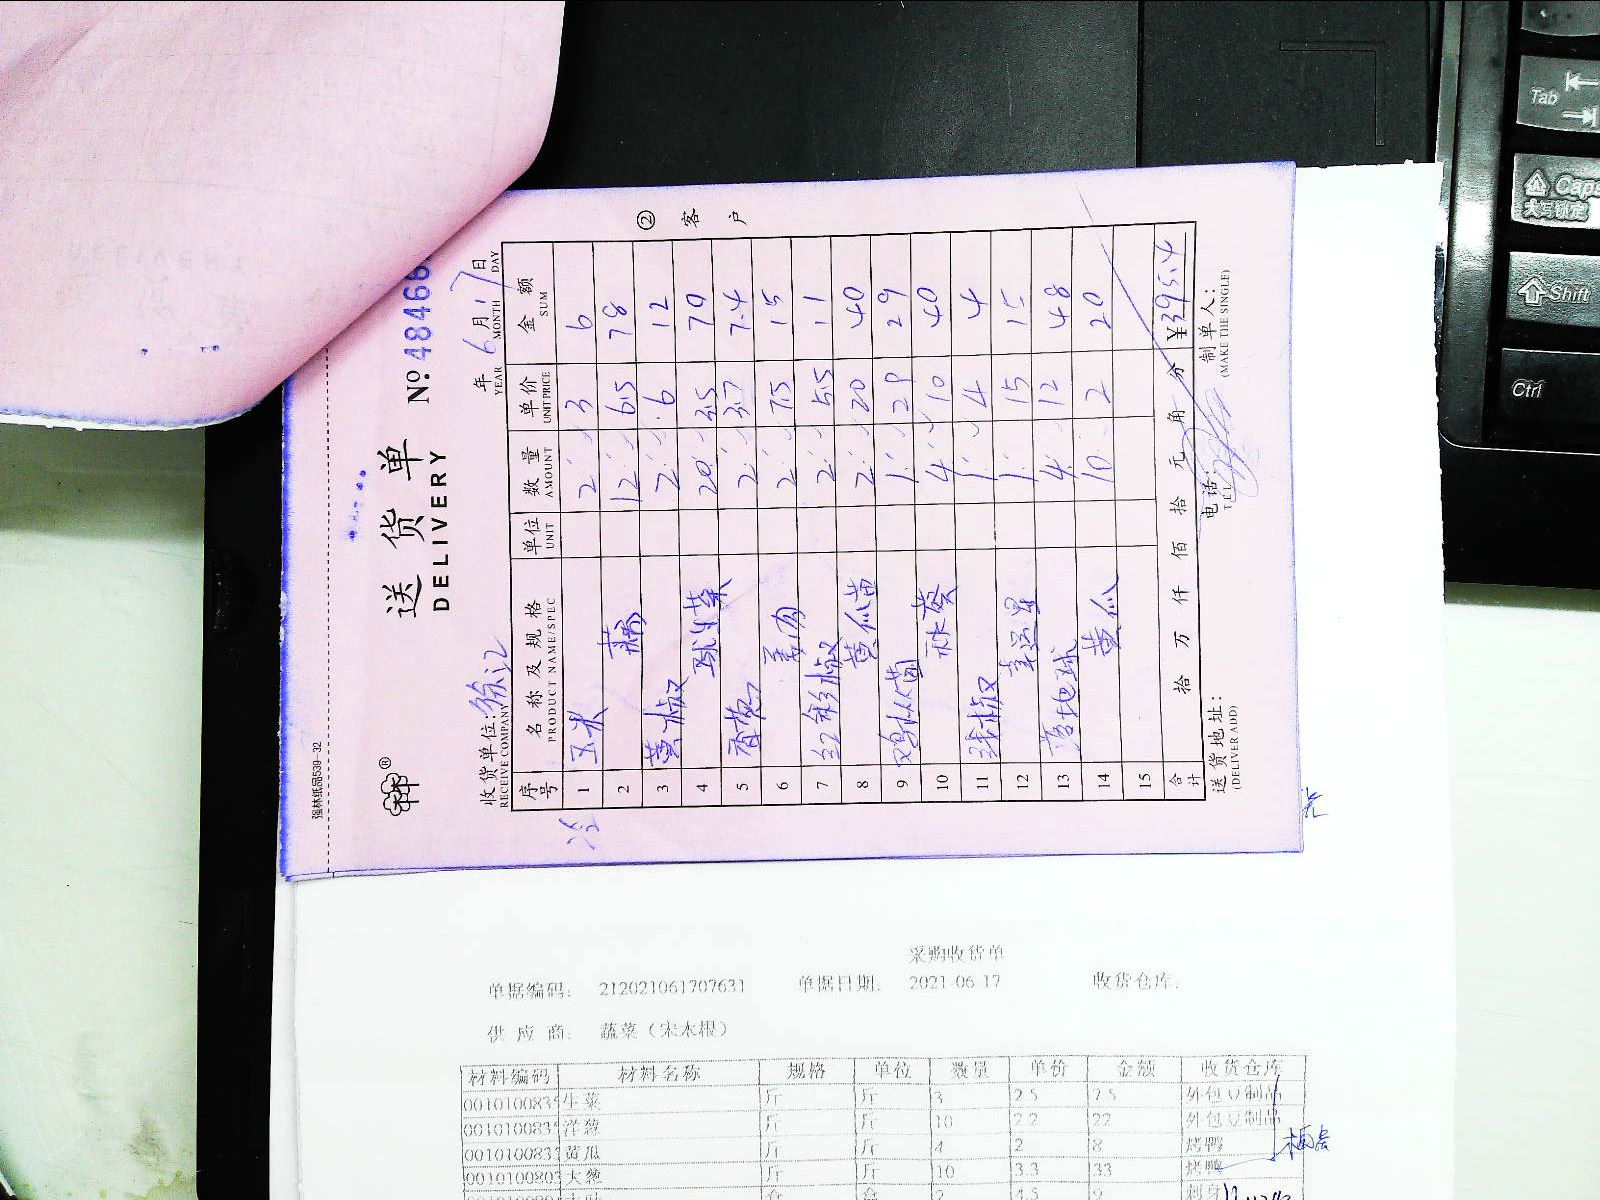 强林纸品539-32
®
送货单
DELIVERY
№.48466
收货单位:徐汇 年6月17日
RECEIVE COMPANY YEAR MONTH DAY
序号 名称及规格 单位 数量 单价 金额
PRODUCT NAME/SPEC UNIT AMOUNT UNIT PRICE SUM
1 玉米 2 3 6
2 藕 12 6.5 78
3 黄椒 2 6 12
4 球生菜 20 3.5 70
5 香葱 2 3.7 7.4
6 2 7.5 15
7 红彩椒 2 5.5 11
8 黄瓜苗 2 20 40
9 1 29 29
10 秋葵 4 10 40
11 1 4 4
12 1 15 15
13 4 12 48
14 黄瓜 10 2 20
15
合计 拾 万 仟 佰 拾 元 角 分 ¥395.4
送货地址: 电话: 制单人:
(DELIVER ADD) TEL (MAKE THE SINGLE)
② 客户
采购收货单
单据编码: 212021061707631 单据日期: 2021-06-17 收货仓库:
供应商: 蔬菜(宋本根)
材料编码 材料名称 规格 单位 数量 单价 金额 收货仓库
001010083 生菜 斤 斤 3 2.5 7.5 外包豆制品
001010083 洋葱 斤 斤 10 2.2 22 外包豆制品
001010083 黄瓜 斤 斤 4 2 8 烤鸭
001010080 大葱 斤 斤 10 3.3 33 烤鸭
盒 盒 2 4.5 9 刺身
Tab
Caps
大写锁定
Shift
Ctrl